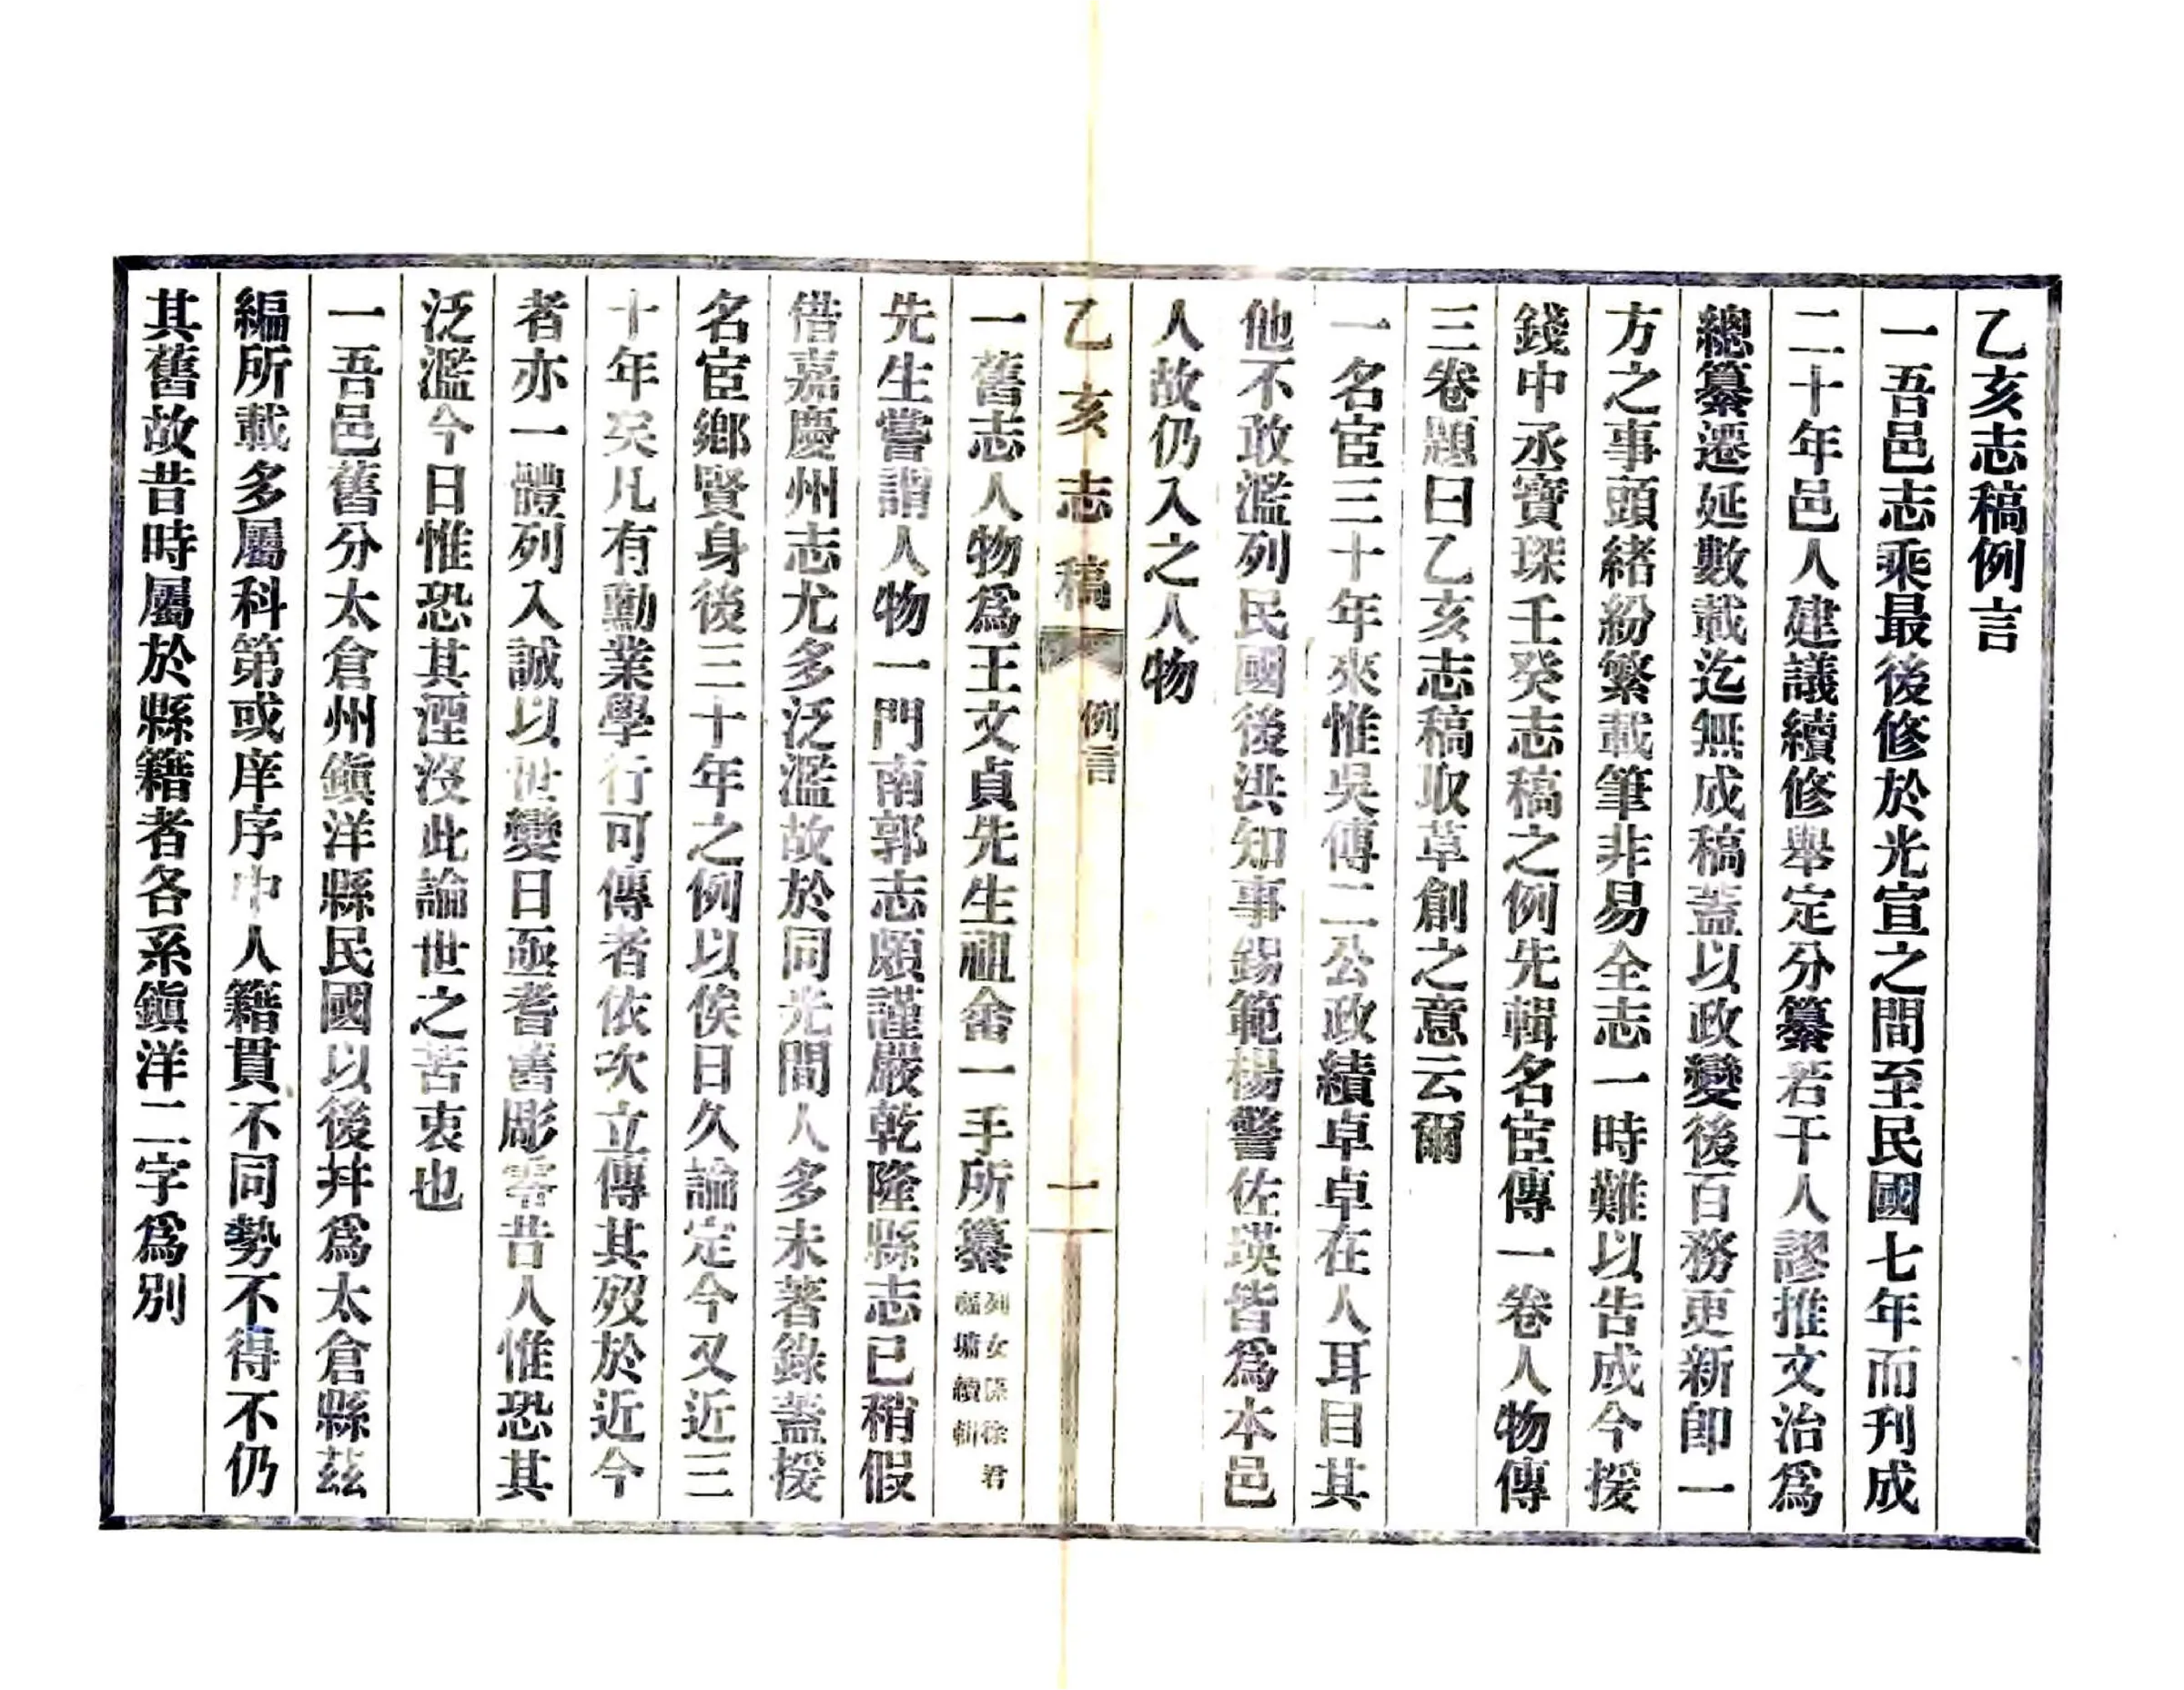 乙亥志稿例言
一吾邑志乘最後修於光宣之間至民國七年而刋成
二十年邑人建議續修舉定分纂若干人謬推文治爲
總纂遷延數載迄無成稿蓋以政變後百務更新卽一
方之事頭緒紛繁載筆非易全志一時難以告成今援
錢中丞寶琛壬癸志稿之例先輯名宦傳一卷人物傳
三卷題曰乙亥志稿取草創之意云爾
一名宦三十年來惟吳傅二公政績卓卓在人耳目其
他不敢濫列民國後洪知事錫範楊警佐瑛皆爲本邑
人故仍入之人物
乙亥志稿
例言
一
一舊志人物爲王文貞先生祖畬一手所纂列女係徐君
福墉續輯
先生嘗謂人物一門南郭志頗謹嚴乾隆縣志已稍假
借嘉慶州志尤多泛濫故於同光間人多未著錄蓋援
名宦鄉賢身後三十年之例以俟日久論定今又近三
十年矣凡有勳業學行可傳者依次立傳其歿於近今
者亦一體列入誠以世變日亟耆舊彫零昔人惟恐其
泛濫今日惟恐其湮沒此論世之苦衷也
一吾邑舊分太倉州鎭洋縣民國以後幷爲太倉縣茲
編所載多屬科第或庠序中人籍貫不同勢不得不仍
其舊故昔時屬於縣籍者各系鎭洋二字爲別